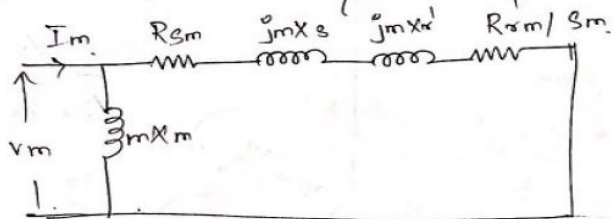 Im Rsm jmxs jmxr' Rrm/Sm
Vm mxm